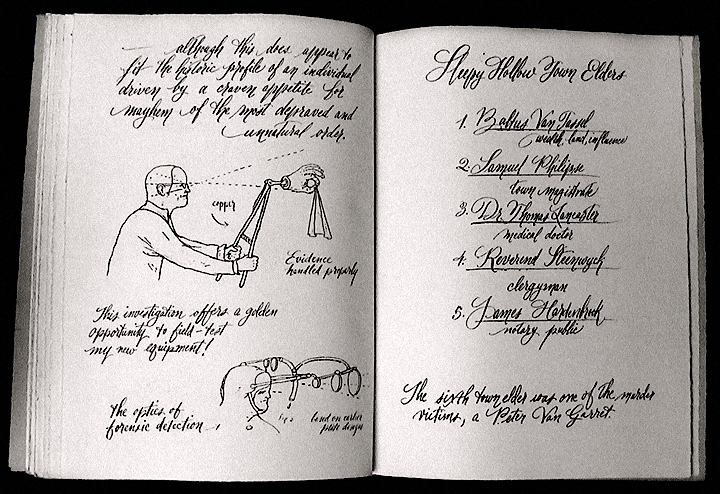 although this does appear to
fit the historic profile of an individual
driven by a craven appetite for
mayhem of the most depraved and
unnatural order.
copper
Evidence
handled properly
This investigation offers a golden
opportunity to field-test
my new equipment!
The optics of
forensic detection
based on earlier
Sleepy Hollow Town Elders
1. Baltus Van Tassel
wealth, land, influence
2. Samuel Philipse
town magistrate
3. Dr. Thomas Lancaster
medical doctor
4. Reverend Steenwyck
clergyman
5. James Hardenbrook
notary public
The sixth town elder was one of the murder
victims, a Peter Van Garret.